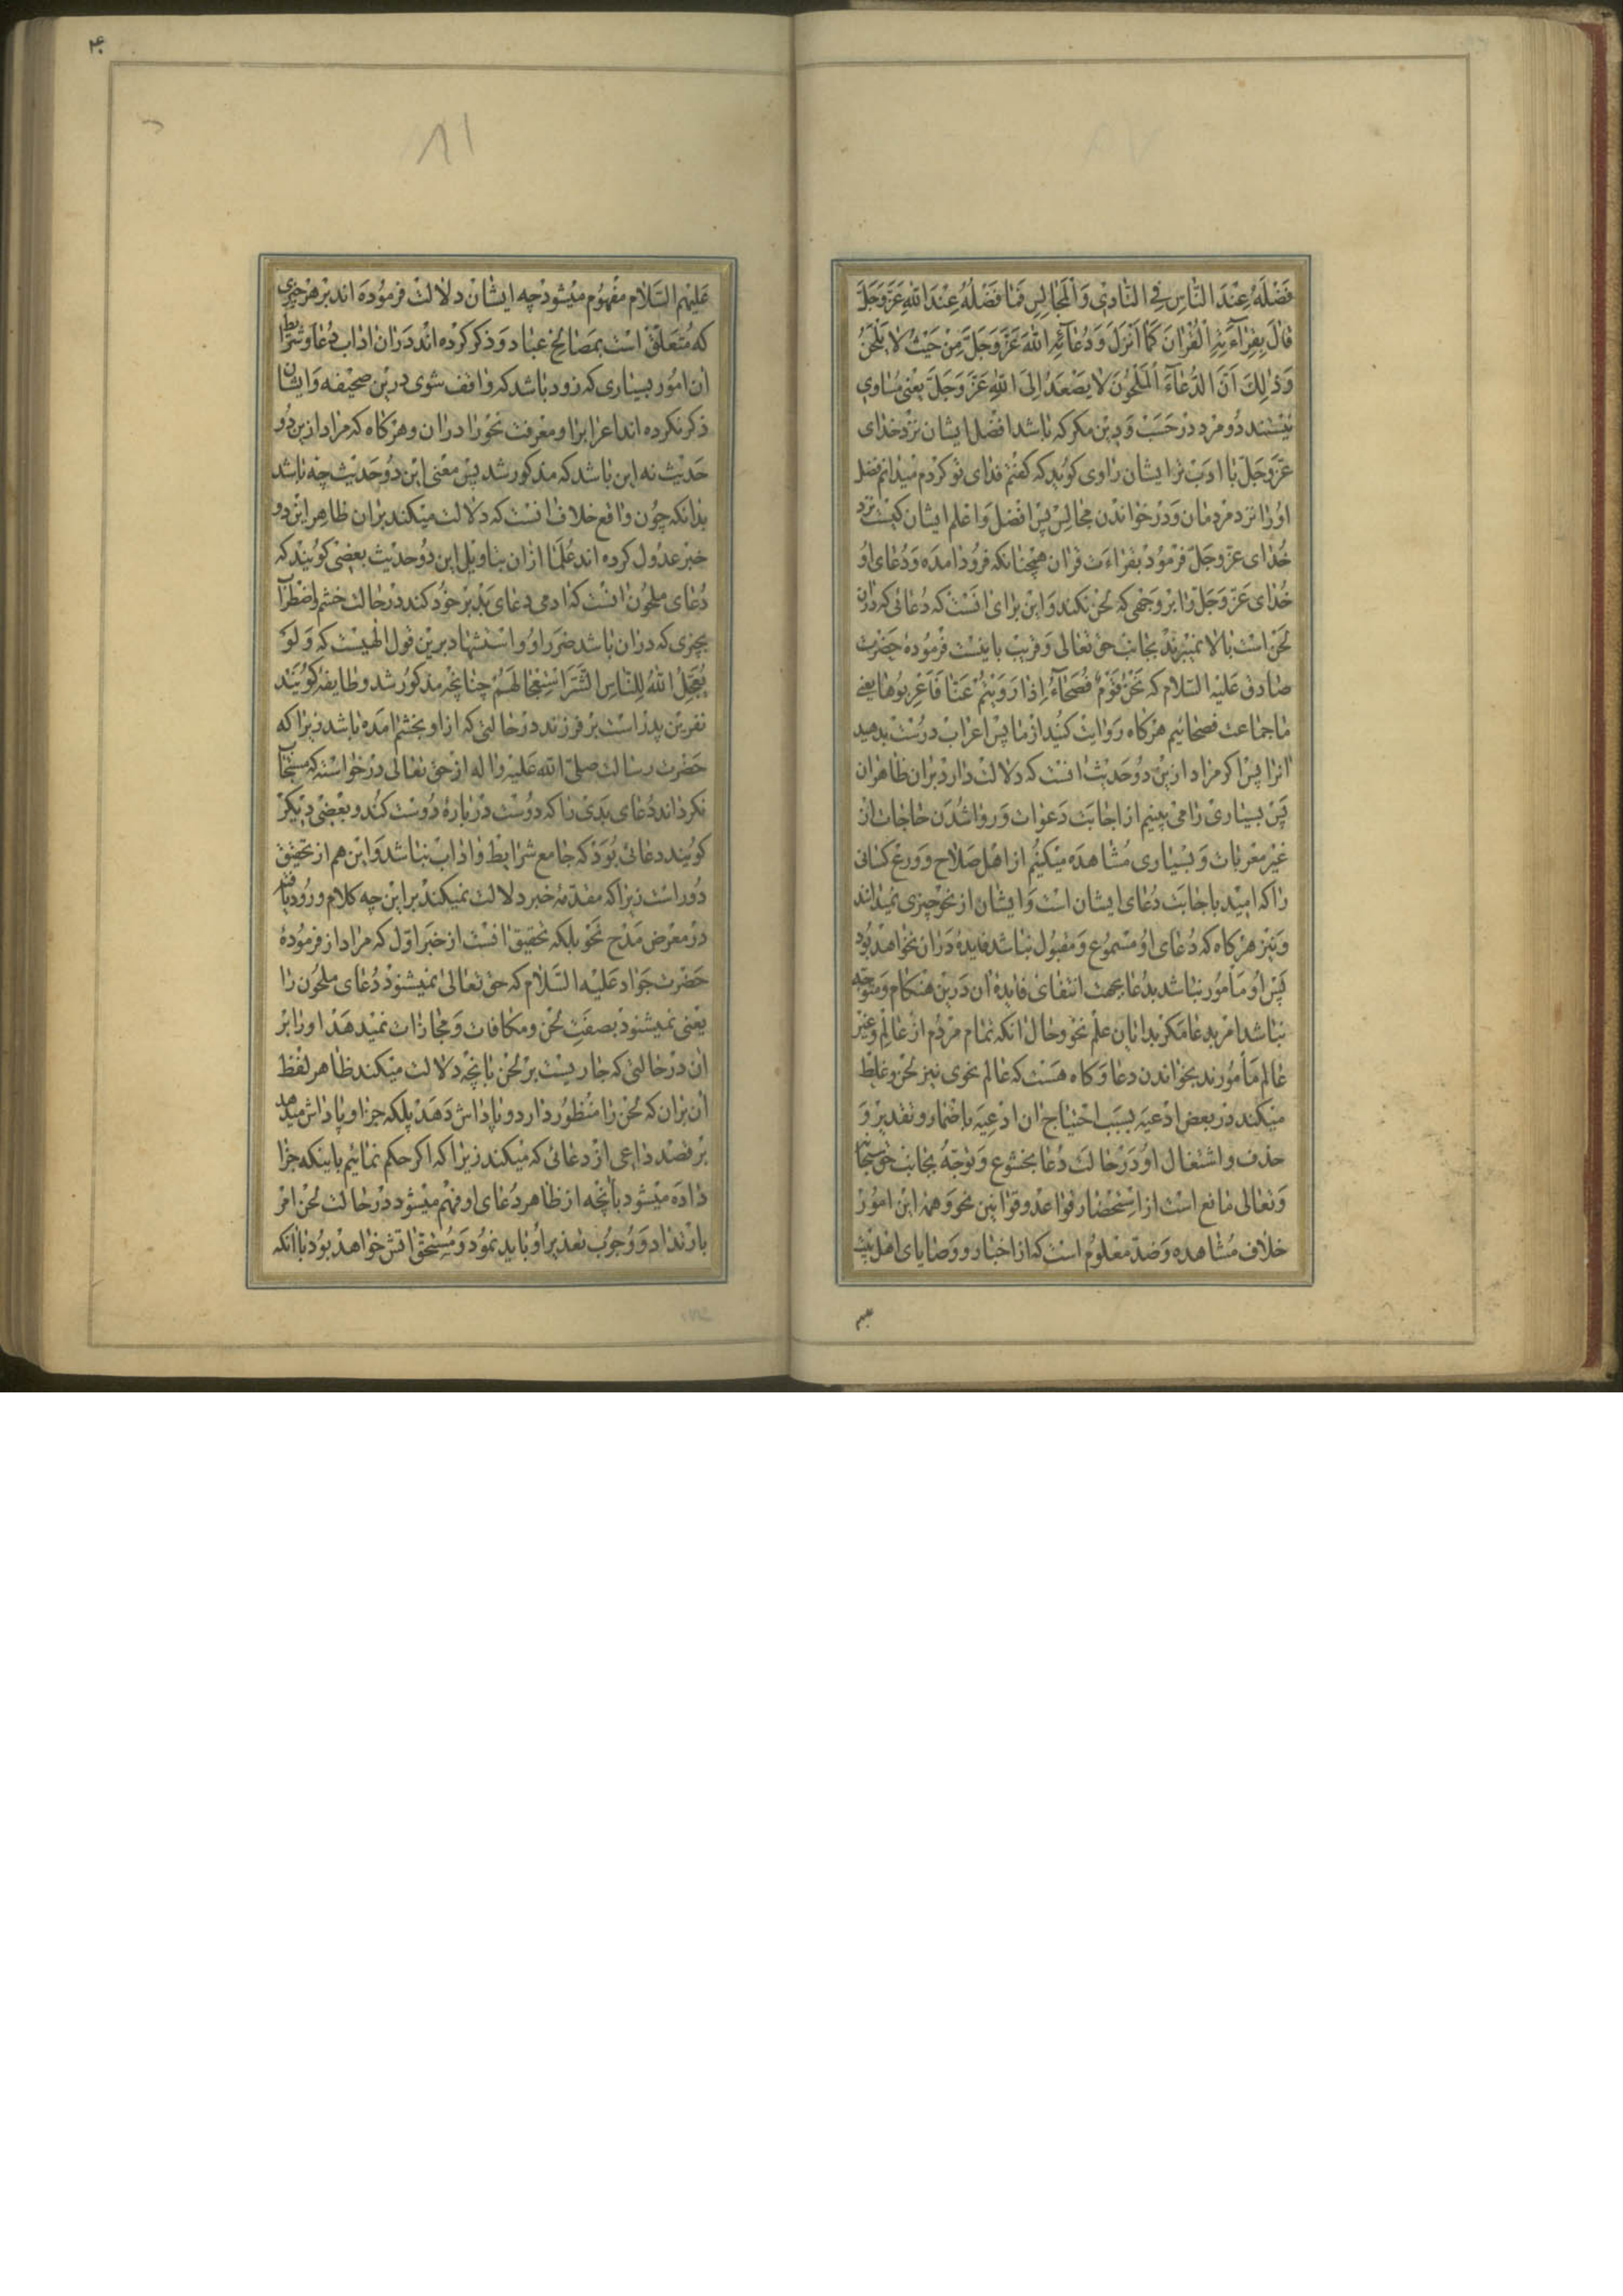 فَضْلَهُ عِنْدَ النَّاسِ فِي النَّادِي وَالْمَجَالِسِ فَمَا فَضْلُهُ عِنْدَ اللهِ عَزَّ وَجَلَّ
قَالَ بِقِرَآءَتِهِ الْقُرْانَ كَمَا اُنْزِلَ وَدُعَآئِهِ اللهَ عَزَّ وَجَلَّ مِنْ حَيْثُ لَا يَلْحَنُ
وَذٰلِكَ اَنَّ الدُّعَآءَ الْمَلْحُونَ لَا يَصْعَدُ اِلَى اللهِ عَزَّ وَجَلَّ يعنى مساوى
نيستند دو مرد در حسب و دين مكر كه باشد افضل ايشان نزد خداى
عزّ وجلّ با ادب تر ايشان راوى كويد كه كفتم فداى تو كردم ميدانم فضل
او را نزد مردمان و در خواندن مجالس پس افضل و اعلم ايشان كيست نزد
خداى عزّ وجلّ فرمود بقراءت قران همچنانكه فرود امده و دعاى او
خداى عزّ وجلّ را بر وجهى كه لحن نكند و اين براى انست كه دعائى كه دران
لحن است بالا نميبرند بجانب حق تعالى و قريب باينست فرموده حضرت
صادق عليه السّلام كه نَحْنُ قَوْمٌ فُصَحَآءُ اِذَا رَوَيْتُمْ عَنَّا فَاَعْرِبُوهَا يعنى
ما جماعت فصحائيم هركاه روايت كنيد از ما پس اعراب درست بدهيد
انرا پس اكر مراد ازين دو حديث انست كه دلالت دارد بران ظاهر ان
پس بسيارى را مى بينيم از اجابت دعوات و روا شدن حاجات از
غير معربات و بسيارى مشاهده ميكنيم از اهل صلاح و ورع كسانى
را كه اميد باجابت دعاى ايشان است و ايشان از نحو چيزى نميدانند
و نيز هركاه كه دعاى او مسموع و مقبول نباشد فايده دران نخواهد بود
پس او مأمور نباشد بدعا بجهت انتفاى فايده ان درين هنكام و متوجه
نباشد امر بدعا مكر بدانايان علم نحو و حال انكه تمام مردم از عالم و غير
عالم مأمورند بخواندن دعا و كاه هست كه عالم نحوى نيز لحن و غلط
ميكند در بعض ادعيه بسبب احتياج ان ادعيه باضمار و تقدير و
حذف و اشتغال او در حالت دعا بخشوع و توجه بجانب حق سبحانه
و تعالى مانع است از استحضار قواعد و قوانين نحو و همه اين امور
خلاف مشاهده و ضد معلوم است كه از اخبار و وصاياى اهل بيت
عليهم
۴۰
۸۱
عليهم السّلام مفهوم ميشود چه ايشان دلالت فرموده اند بر هر چيزى
كه متعلق است بمصالح عباد و ذكر كرده اند دران اداب دعا و شرايط
ان امور بسيارى كه زود باشد كه واقف شوى درين صحيفه و ايشان
ذكر نكرده اند اعراب را و معرفت نحو را دران و هركاه كه مراد ازين دو
حديث نه اين باشد كه مذكور شد پس معنى اين دو حديث چه باشد
بدانكه چون واقع خلاف انست كه دلالت ميكند بران ظاهر اين دو
خبر عدول كرده اند علما ازان بتاويل اين دو حديث بعضى كويند كه
دعاى ملحون انست كه ادمى دعاى بد بر خود كند در حالت خشم و اضطرار
بچيزى كه دران باشد ضرر او و استشهاد برين قول الهيست كه وَلَوْ
يُعَجِّلُ اللهُ لِلنَّاسِ الشَّرَّ اسْتِعْجَالَهُمْ چنانچه مذكور شد و طايفه كويند
نفرين پدر است بر فرزند در حالتى كه از او بخشم امده باشد زيرا كه
حضرت رسالت صلى الله عليه واله از حق تعالى درخواسته كه مستجاب
نكرداند دعاى بدى را كه دوست درباره دوست كند و بعضى ديكر
كويند دعائى بود كه جامع شرايط و اداب نباشد و اين هم از تحقيق
دور است زيرا كه مقدمه خبر دلالت نميكند براين چه كلام ورود يافته
در معرض مدح نحو بلكه تحقيق انست از خبر اوّل كه مراد از فرموده
حضرت جواد عليه السّلام كه حق تعالى نميشنود دعاى ملحون را
يعنى نميشنود بصفت لحن و مكافات و مجازات نميدهد او را بر
ان در حالتى كه جاريست بر لحن بانچه دلالت ميكند ظاهر لفظ
ان بران كه لحن را منظور دارد و پاداش دهد بلكه جزا و پاداش ميدهد
بر قصد داعى از دعائى كه ميكند زيرا كه اكر حكم نمائيم باينكه جزا
داده ميشود بانچه از ظاهر دعاى او فهم ميشود در حالت لحن امر
بارتداد و وجوب تعذير او بايد نمود و مستحق اتش خواهد بود با انكه